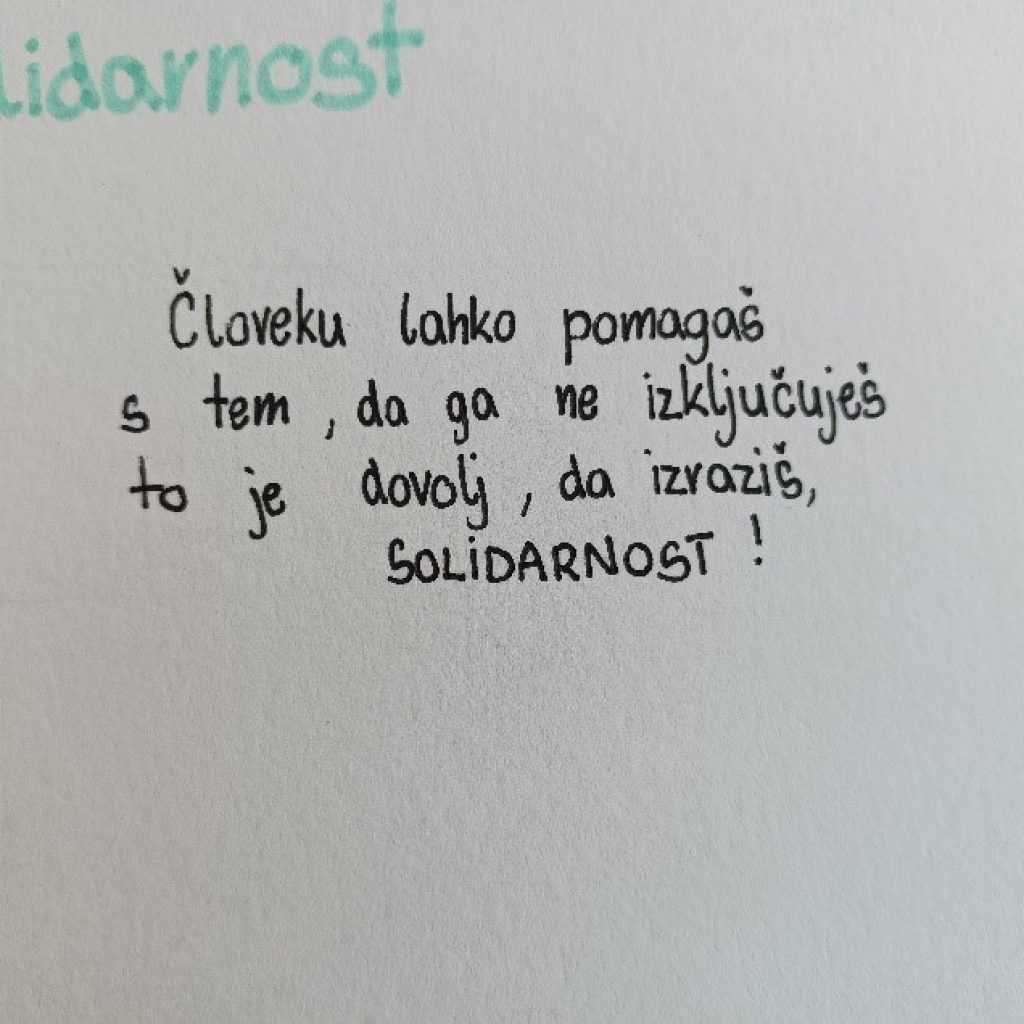 lidarnost
Človeku lahko pomagaš
s tem, da ga ne izključuješ
to je dovolj, da izraziš,
SOLIDARNOST!